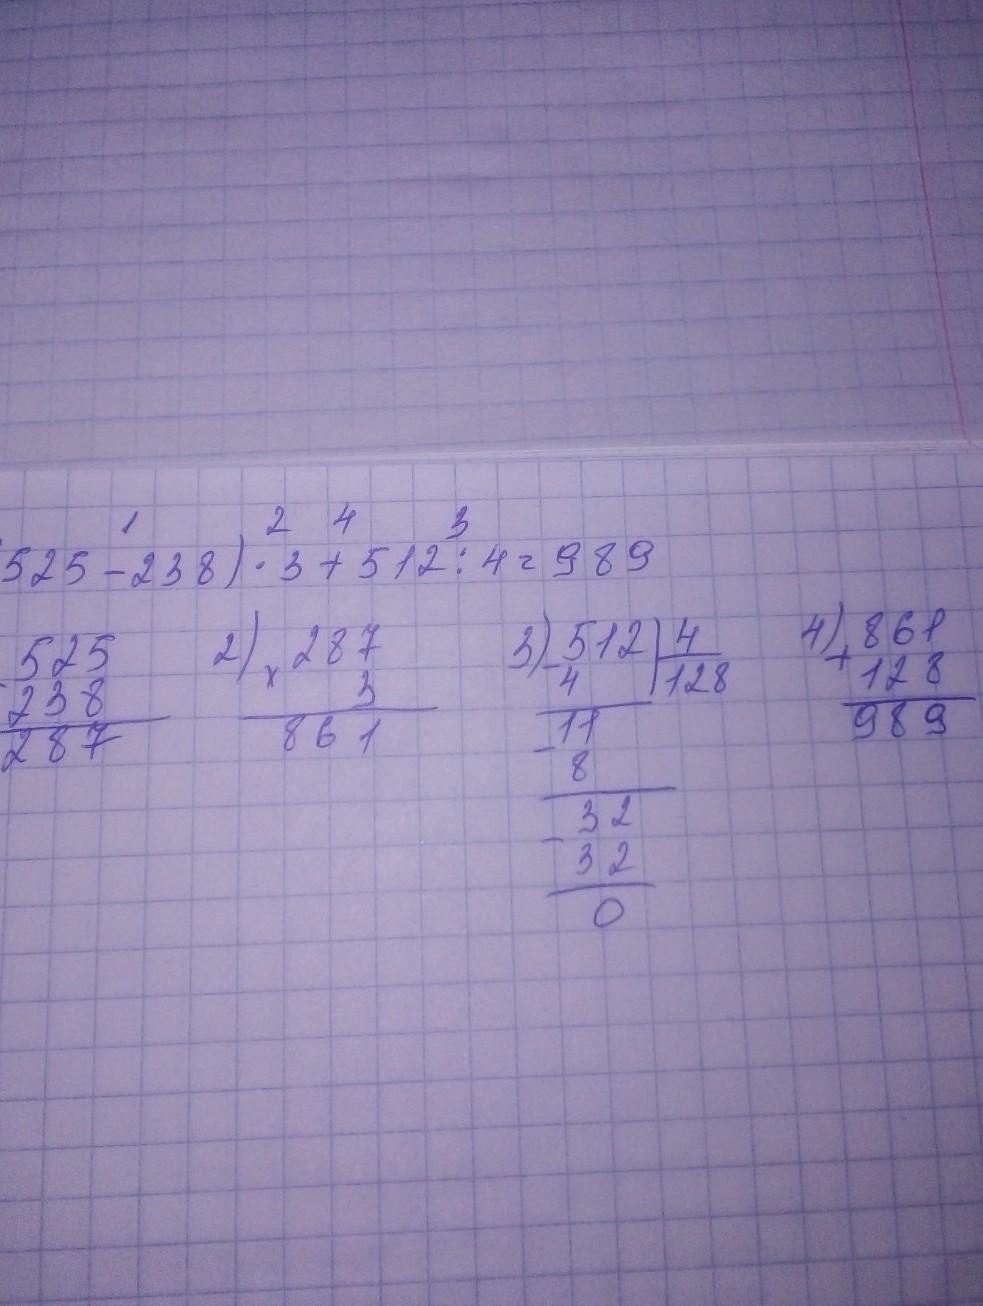 1 2 4 3
(525-238)·3+512:4=989
525 2) 287 3) 512 4 4) 861
- 238 x 3 - 4 128 + 128
287 861 11 989
- 8
32
- 32
0